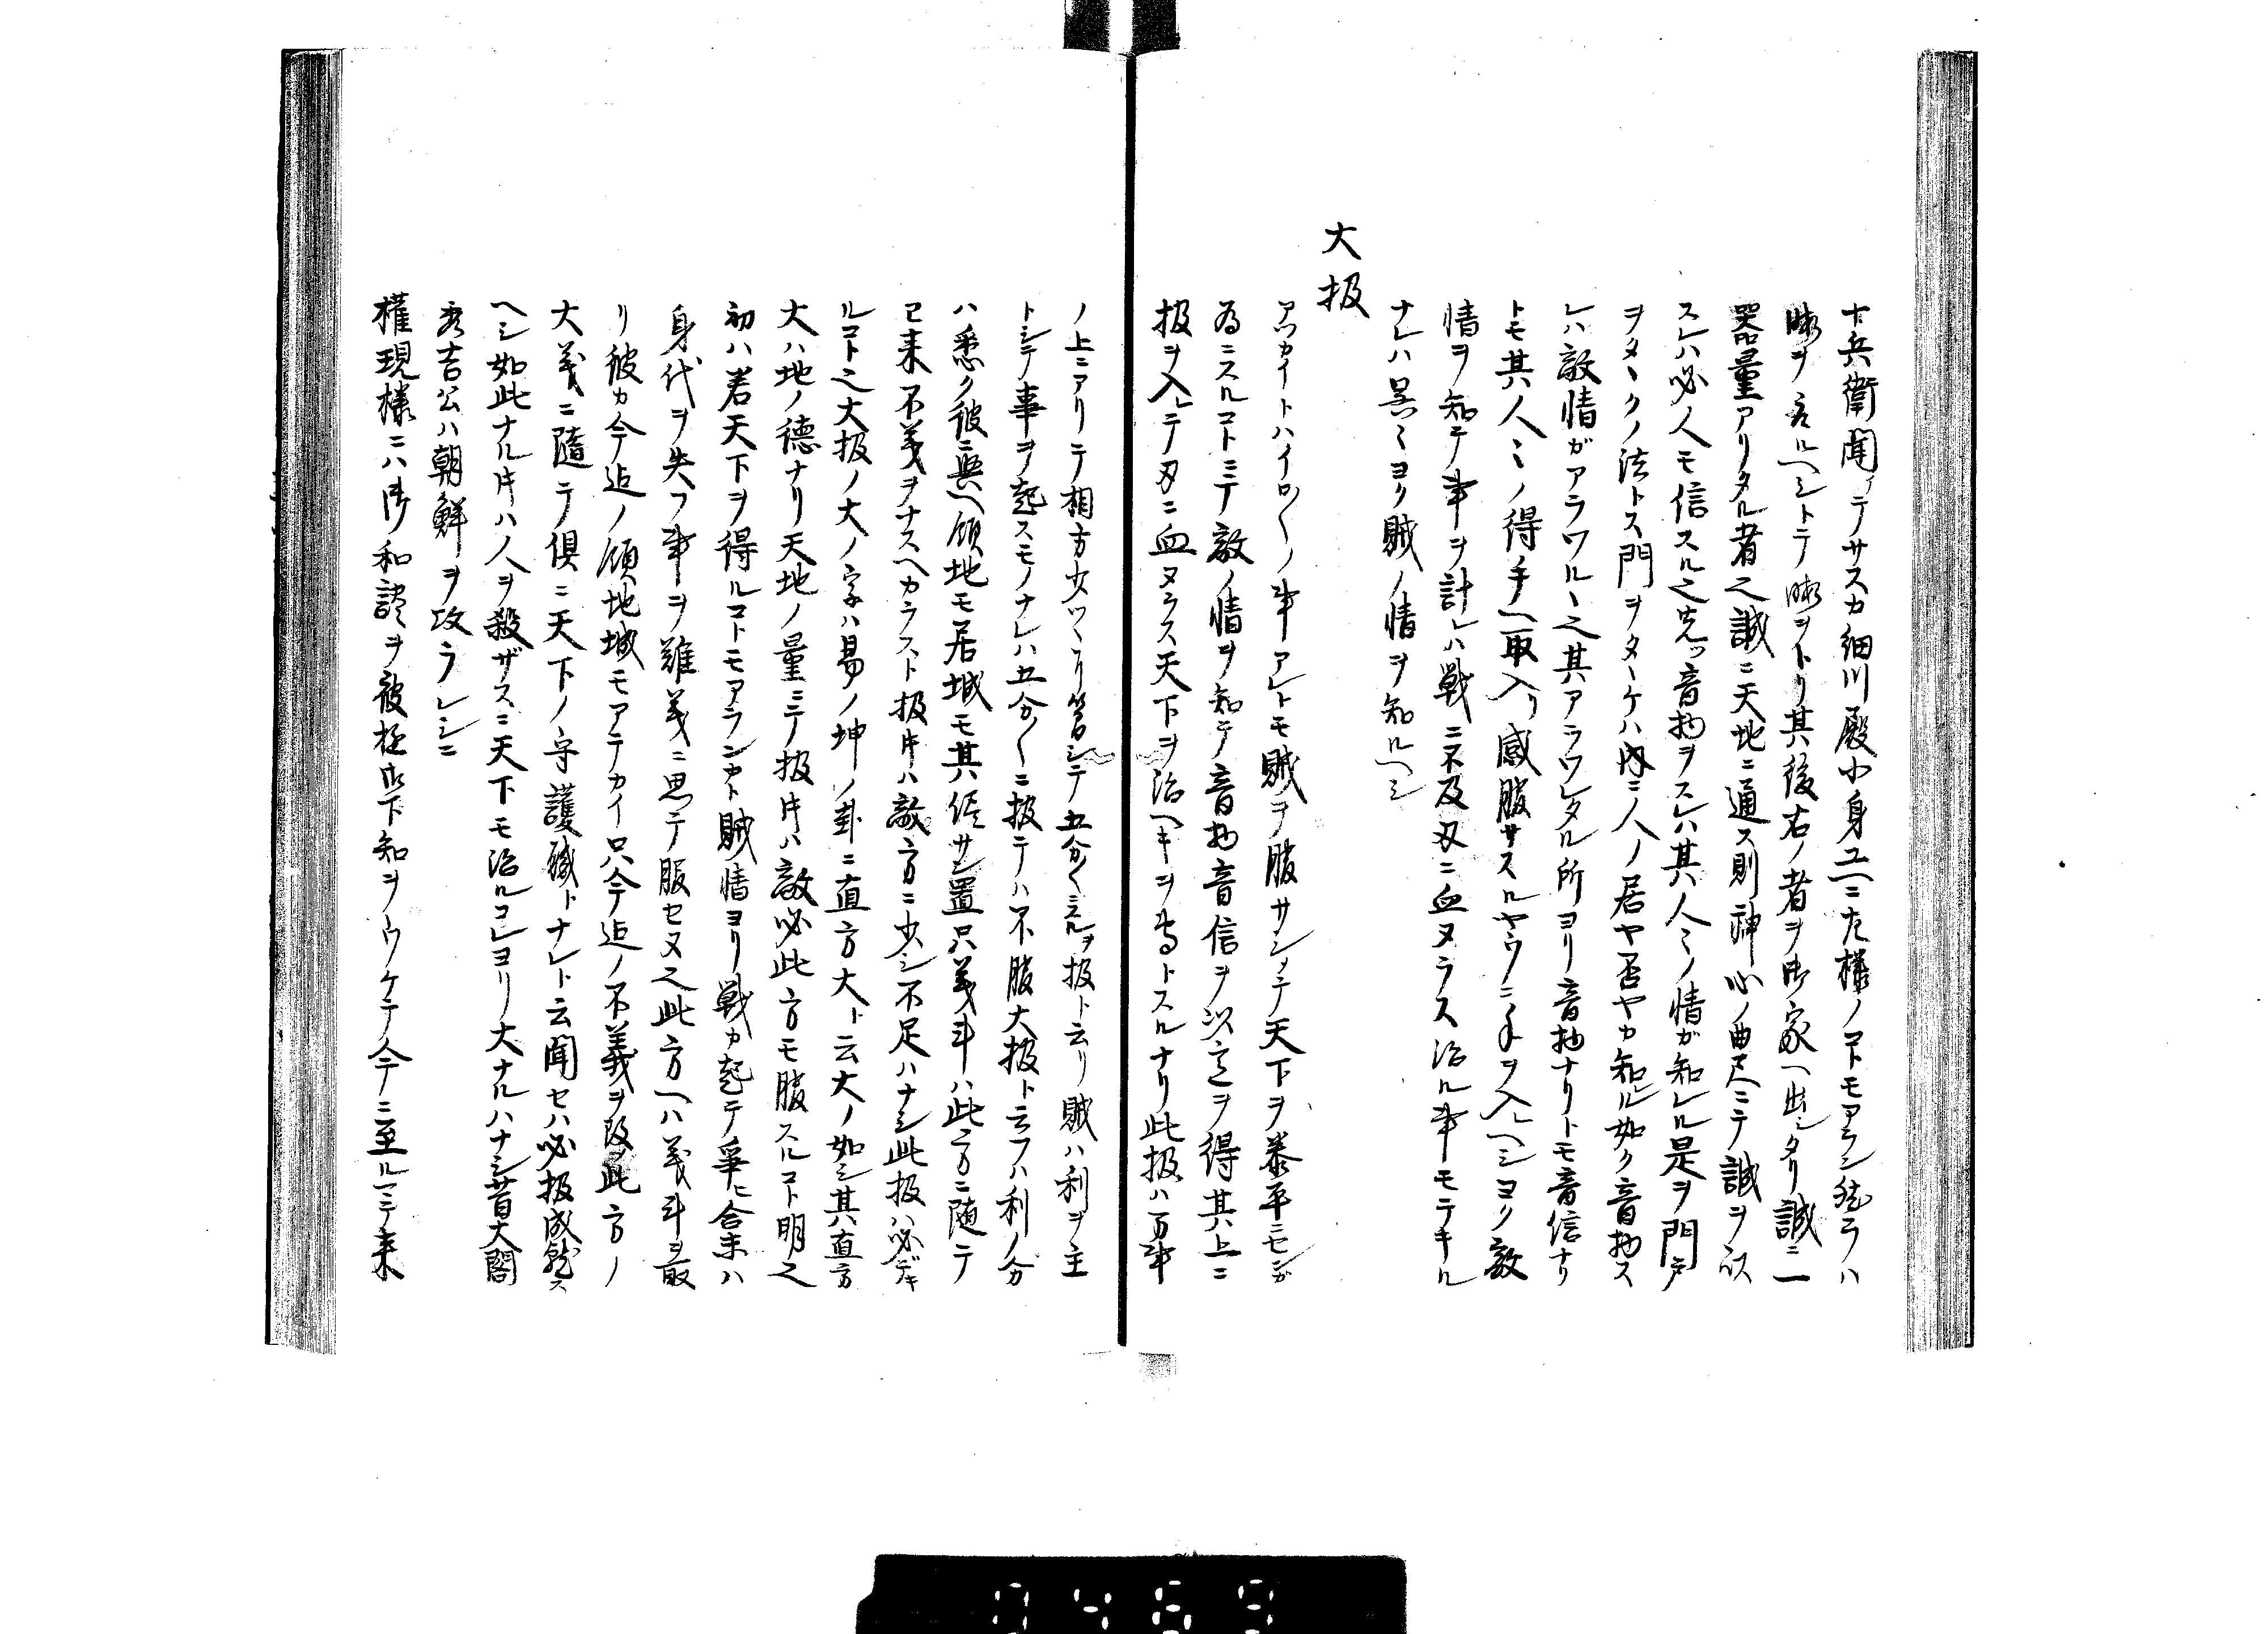 十兵衛聞テサスカ細川殿小身ユヘニ左様ノコトモアラン然ラハ
暇ヲ取ルヘシトテ暇ヲトリ其後右ノ者ヲ御家ヘ出シタリ誠ニ一
器量アリタル者之誠ニ天地ニ通ス則神心ノ曲尺ニテ誠ヲ以
スレハ必人モ信スル之先ツ音物ヲスレハ其人ミノ情ガ知レル是ヲ門戸
ヲタヽクノ法トス門ヲタヽケハ内ニ人ノ居ヤ否ヤカ知ル如ク音物ス
レハ敵情ガアラワルヽ之其アラワレタル所ヨリ音物ナリトモ音信ナリ
トモ其人ミノ得手ヘ取入リ感服サスルヤウニ手ヲ入ルヘシヨク敵
情ヲ知テ事ヲ計レハ戦ニ不及刃ニ血ヌラス治ル事モテキル
ナレハ呉ミヨク賊ノ情ヲ知ルヘシ
大扱
アツカイトハイロ〳〵ノ事アレトモ賊ヲ服サシメテ天下ヲ泰平ニセンガ
為ニスルコトニテ敵ノ情ヲ知テ音物音信ヲ以之ヲ得其上ニ
扱ヲ入レテ刃ニ血ヌラス天下ヲ治ヘキヲ専トスルナリ此扱ハ万事
ノ上ニアリテ相方少ツヽリ簡シテ五分〳〵ニスルヲ扱ト云リ賊ハ利ヲ主
トシテ事ヲ起スモノナレハ五分〳〵ニ扱テハ不服大扱ト云フハ利ノ分
ハ悉ク彼ニ与ヘ領地モ居城モ其侭サシ置只義斗ハ此方ニ随テ
已来不義ヲナスヘカラスト扱片ハ敵方ニ少シ不足ハナシ此扱ハ必デキ
ルコト之大扱ノ大ノ字ハ易ノ坤ノ卦ニ直方大ト云大ノ如シ其直方
大ハ地ノ徳ナリ天地ノ量ニテ扱片ハ敵必此方モ服スルコト明之
初ハ若天下ヲ得ルコトモアランカト賊情ヨリ戦カ起テ争ヒ合末ハ
身代ヲ失フ事ヲ難義ニ思テ服セヌ之此方ヘハ義斗ヲ取
リ彼カ今迠ノ領地城モアテカイ只今迠ノ不義ヲ改メ此方ノ
大義ニ隨テ倶ニ天下ノ守護職トナレト云聞セハ必扱成就ス
ヘシ如此ナル片ハ人ヲ殺ザスニ天下モ治ルコレヨリ大ナルハナシ昔大閤
秀吉公ハ朝鮮ヲ攻ラレシニ
権現様ニハ御和談ヲ被極御下知ヲウケテ今ニ至ルニテ来